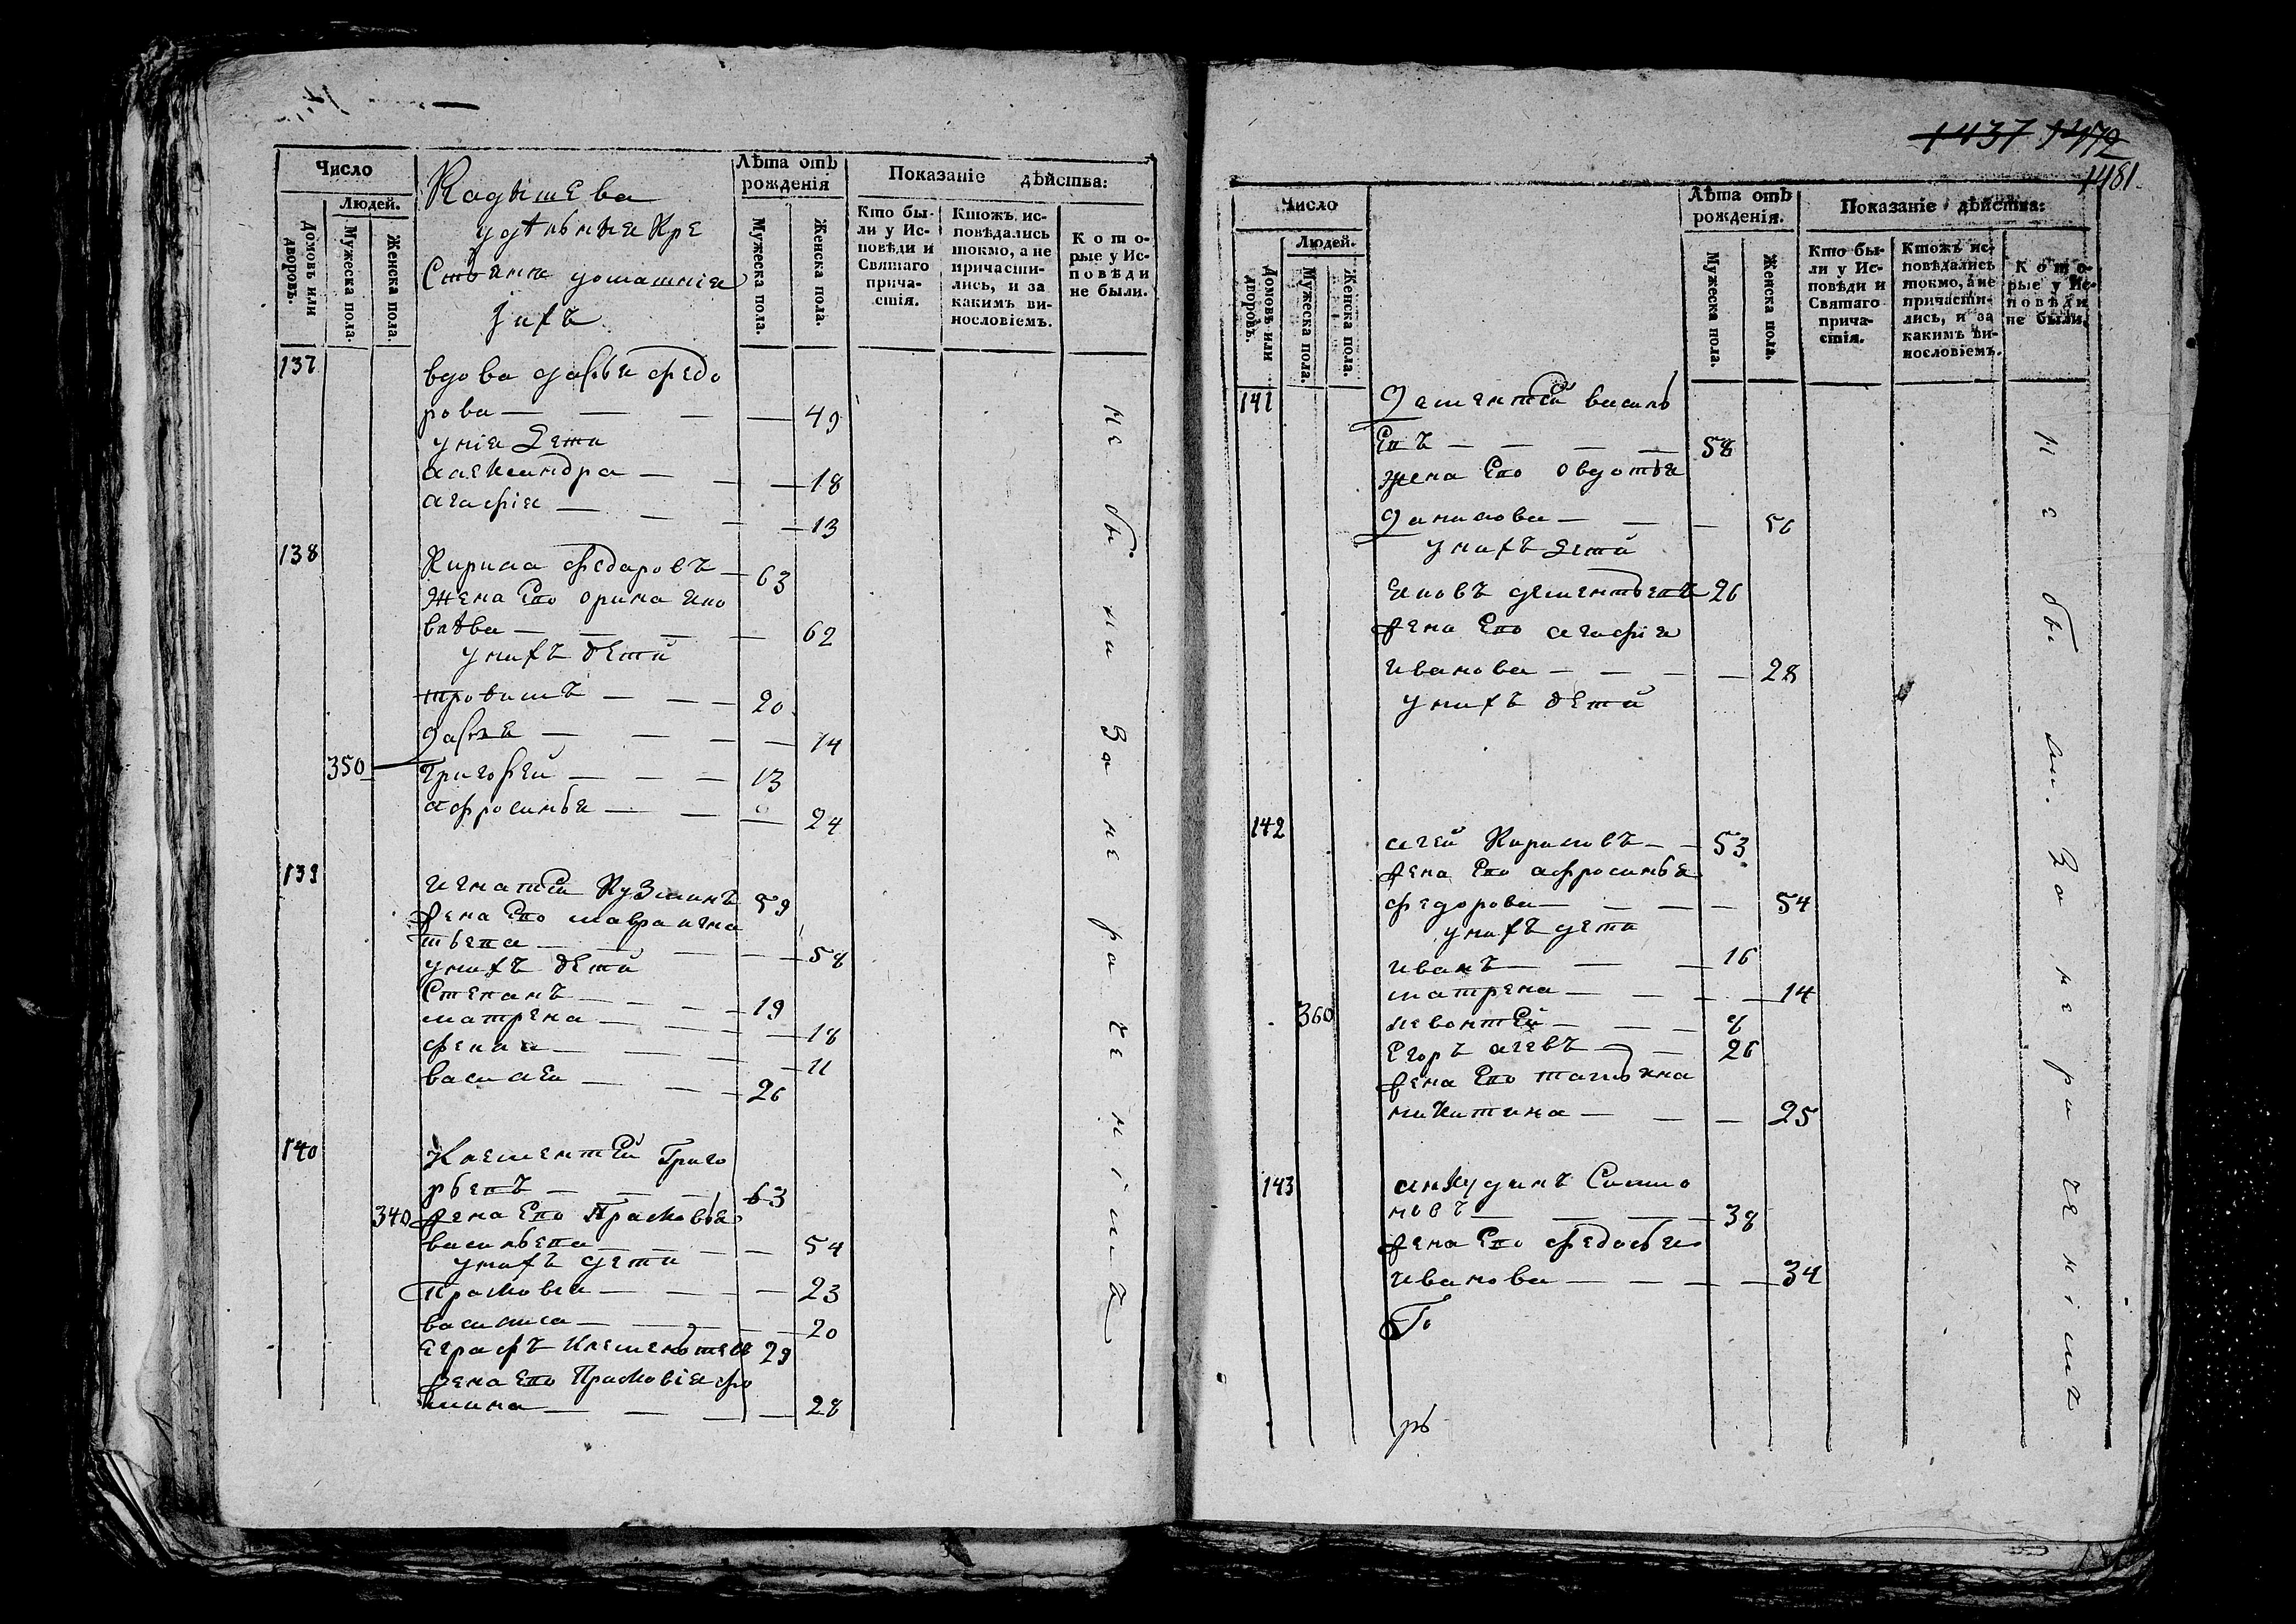 Число
Людей.
Домовъ или дворовъ.
Мужеска пола.
Женска пола.
Кадышева
удѣльные Кре
стьяне домашніе
ихъ
Лѣта отъ рожденія
Мужеска пола.
Женска пола.
Показаніе дѣйства:
Кто бы-
ли у Ис-
повѣди и
Святаго
прича-
стія.
Ктожъ ис-
повѣдались
токмо, а не
причасти-
лись, и за
какимъ ви-
нословіемъ.
Кото-
рые у Ис-
повѣди
не были.
137 вдова дарья федо
рова — — — 49
унія дети
александра — — 18
агафія — — — 13
138 Кирила федаровъ — 63
жена Его орина яко
влѣва — — — 62
унихъ дети
трофимъ — — — 20
дарья — — — 14
350 григорей — — — 13
афросинья — — — 24
139 игнатей Кузминъ 59
жена Его мавра игна
тьева — — — 58
унихъ дети
Степанъ — — — 19
матрена — — — 18
фекла — — — 11
василей — — — 26
140 Клементей Григо
рьевъ — — — 63
340 жена Его Прасковья
васильева — — — 54
унихъ дети
Прасковья — — — 23
василиса — — — 20
еграфъ клементьев 29
жена Его Прасковія фо
мина — — — 28
не были За нераченіимъ
1437 1472
1481
Число
Людей.
Домовъ или дворовъ.
Мужеска пола.
Женска пола.
Лѣта отъ рожденія.
Мужеска пола.
Женска пола.
Показаніе дѣйства:
Кто бы-
ли у Ис-
повѣди и
Святаго
прича-
стія.
Ктожъ ис-
повѣдались
токмо, а не
причасти-
лись, и за
какимъ ви-
нословіемъ.
Кото-
рые у Ис-
повѣди
не были.
141 Дементей василь
Евъ — — — 58
жена Его овдотья
Данилова — — — 56
унихъ дети
яковъ дементьевъ 26
жена Его агафія
иванова — — — 28
унихъ дети
142 агей Кириловъ — 53
жена Его афросинья
федорова — — — 54
унихъ дети
иванъ — — — 16
матрена — — — 14
360 левонтей — — — 8
Егоръ агевъ — — 26
жена Его татьяна
никитина — — — 25
143 анкудинъ Симио
новъ — — — 38
жена Его федосья
иванова — — — 34
не были За нераченіимъ